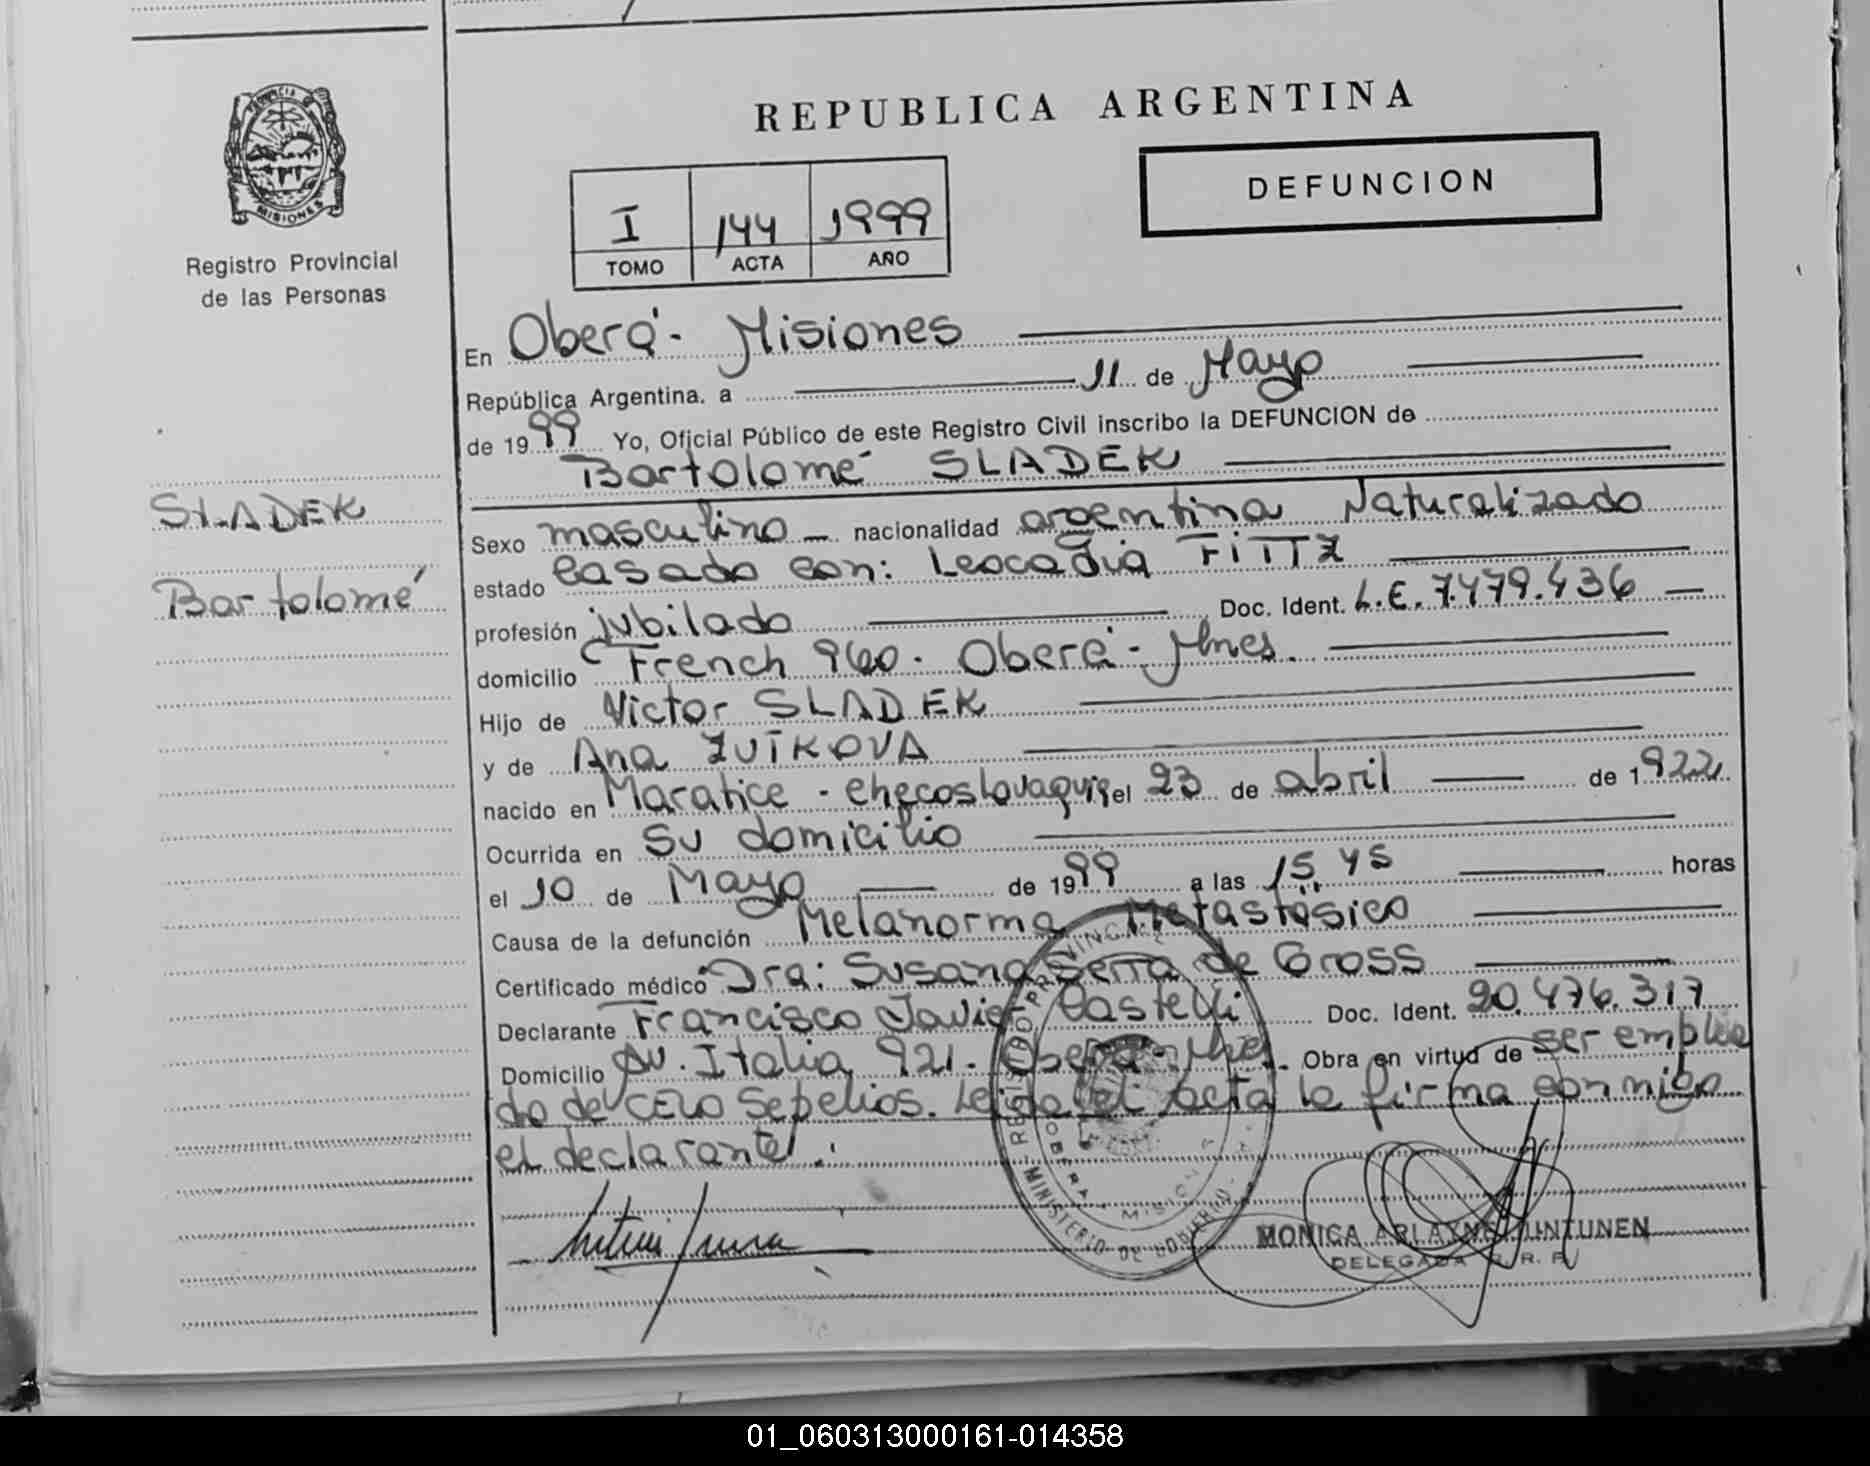 PROVINCIA DE
MISIONES
Registro Provincial
de las Personas
SLADEK
Bartolomé
REPUBLICA ARGENTINA
DEFUNCION
I 144 1999
TOMO ACTA AÑO
En Oberá - Misiones
República Argentina. a 11 de Mayo
de 1999 Yo, Oficial Público de este Registro Civil inscribo la DEFUNCION de
Bartolomé SLADEK
Sexo masculino nacionalidad argentina Naturalizado
estado casado con: Leocadia FITTZ
profesión jubilado Doc. Ident. L.E. 7.479.436
domicilio French 960. Oberá - Mnes.
Hijo de Victor SLADEK
y de Ana ZUIKOVA
nacido en Maratice - Checoslovaquia el 23 de abril de 1922
Ocurrida en su domicilio
el 10 de Mayo de 1999 a las 15 45 horas
Causa de la defunción Melanorma Metastásico
Certificado médico Dra: Susana Serra de Gross
Declarante Francisco Javier Castelli Doc. Ident. 20.476.317
Domicilio Av. Italia 921. Oberá - Mnes. Obra en virtud de ser emplea
do de CELO Sepelios. Leida el acta la firma conmigo
el declarante.
REGISTRO PROVINCIAL
MINISTERIO DE GOBIERNO
OBERA MISIONES
MONICA UNTUNEN
DELEGADA R. P.
01_060313000161-014358